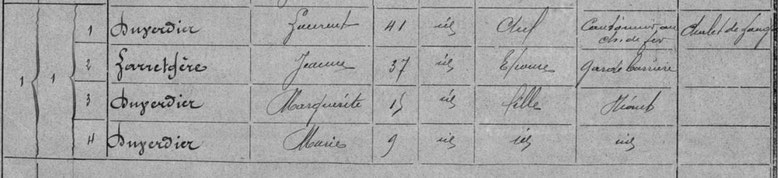 1 1 1 Duverdier Laurent 41 id Chef Cantonnier au
ch. de fer
2 Larretgère Jeanne 37 id Epouse Garde barrière
3 Duverdier Marguerite 15 id fille Néant
4 Duverdier Marie 9 id id id